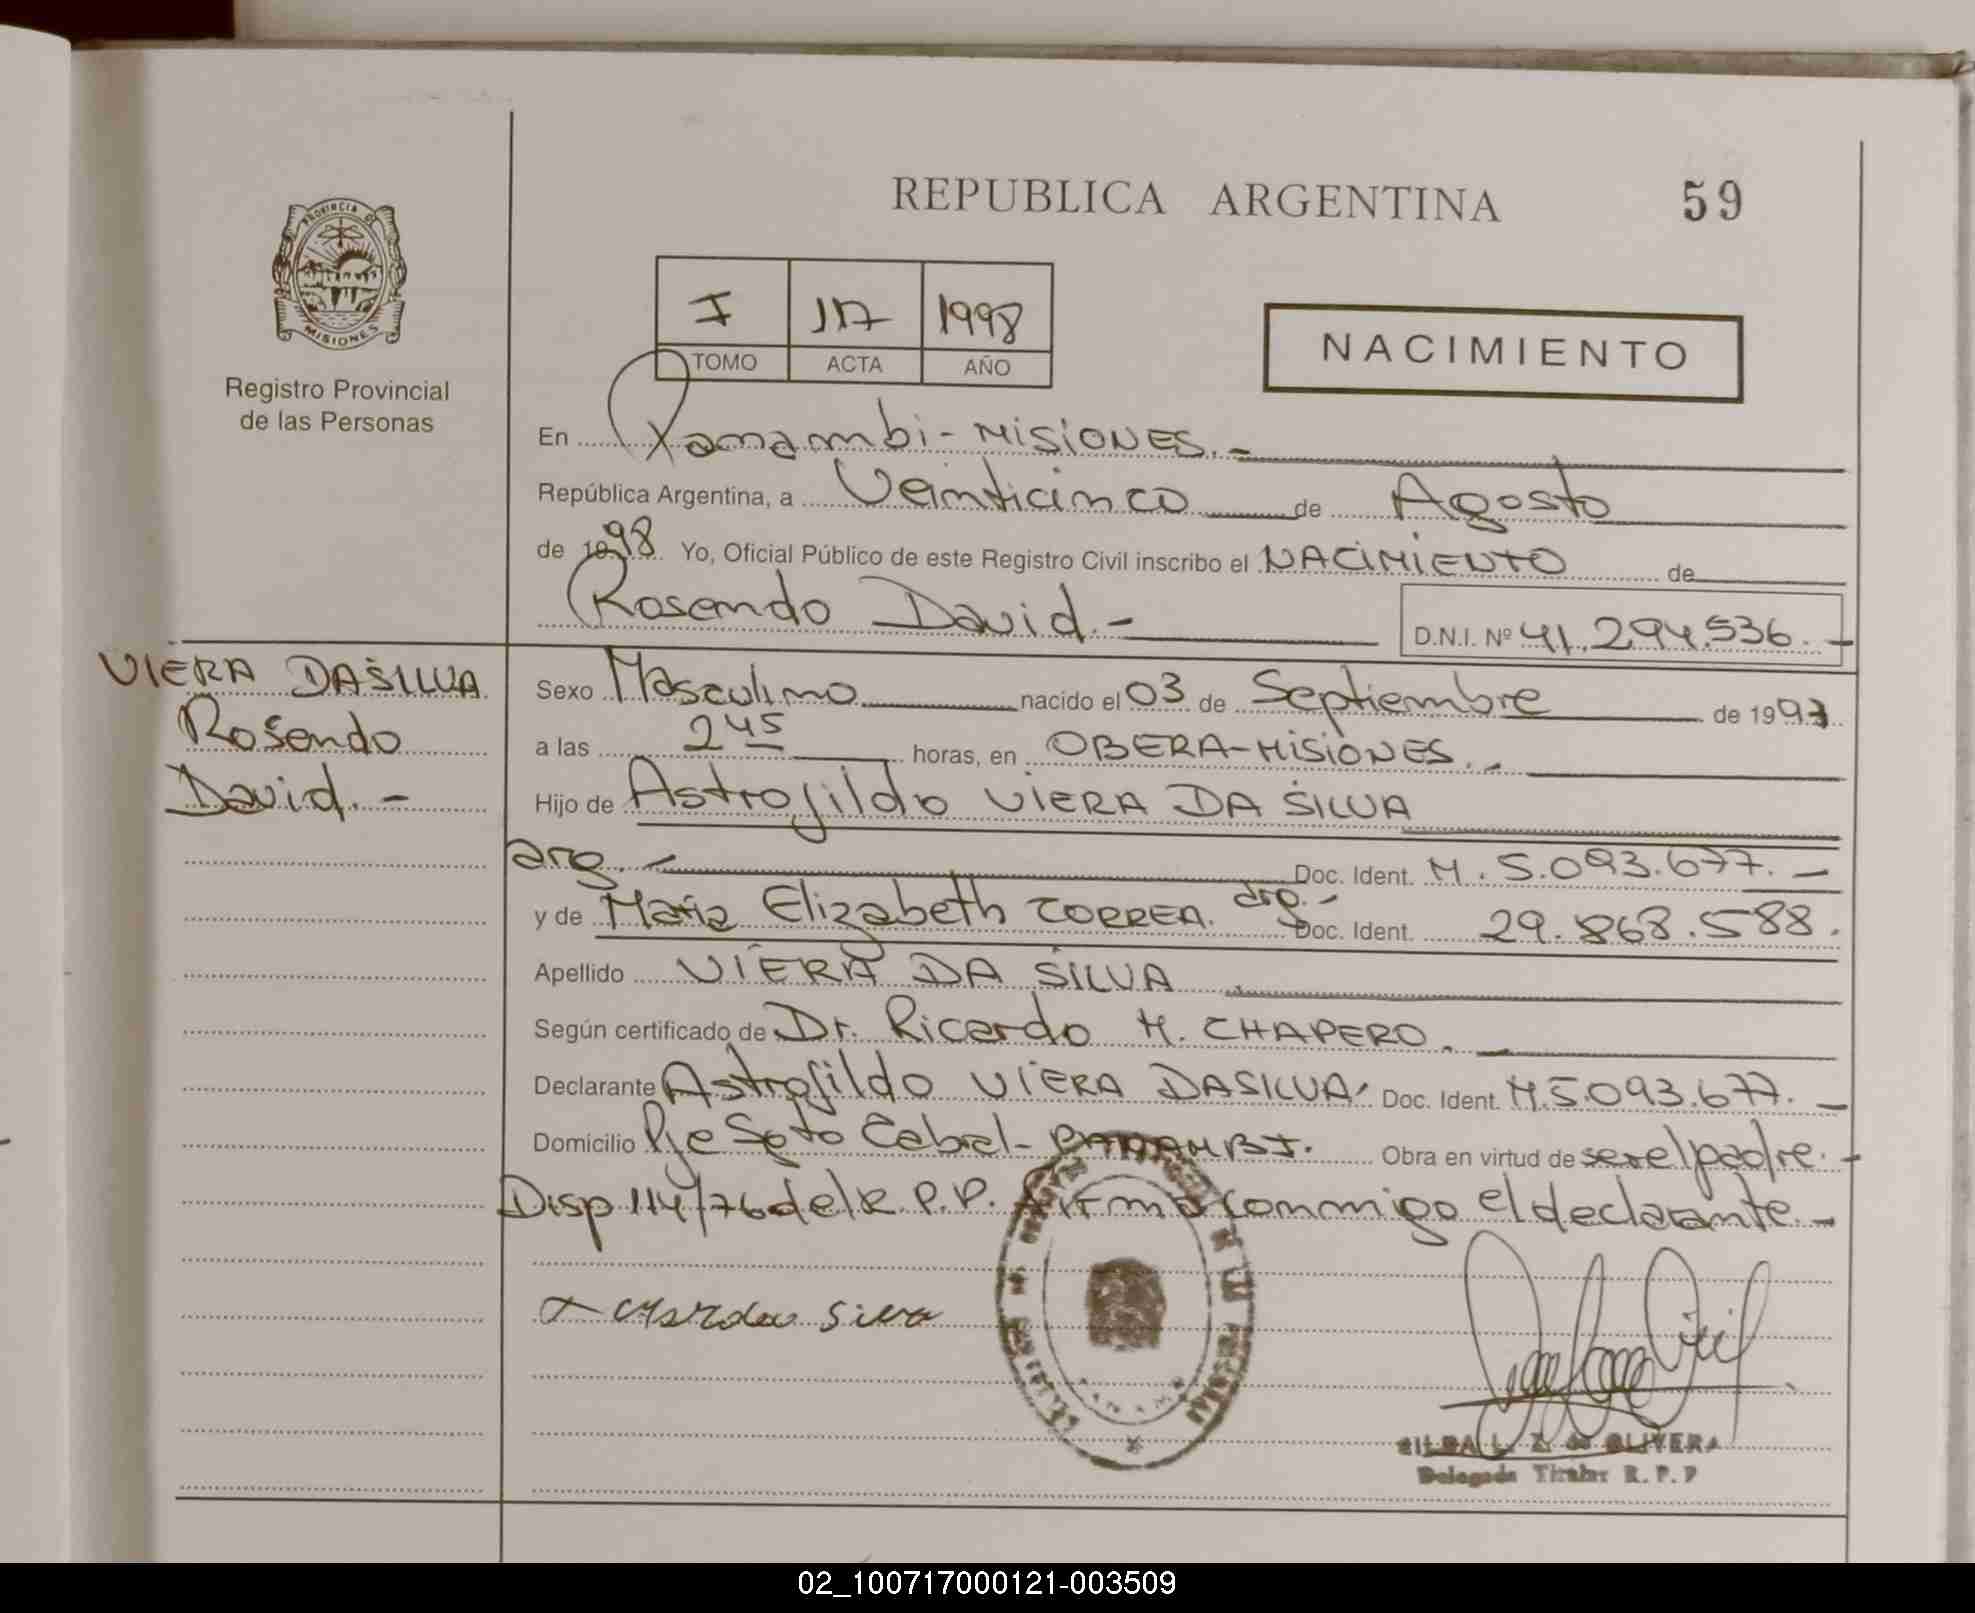 REPUBLICA ARGENTINA
59
PROVINCIA D
MISIONES
Registro Provincial
de las Personas
I 117 1998
TOMO ACTA AÑO
NACIMIENTO
En Panambi - MISIONES.-
República Argentina, a Veinticinco de Agosto
de 1998 Yo, Oficial Público de este Registro Civil inscribo el NACIMIENTO de
Rosendo David.-
D.N.I. Nº 41.294.536.-
VIERA DASILVA
Rosendo
David.-
Sexo Masculino nacido el 03 de Septiembre de 1997
a las 2 45 horas, en OBERA-MISIONES.-
Hijo de Astrojildo VIERA DA SILVA
arg.- Doc. Ident. M.5.093.677.-
y de Maria Elizabeth CORREA. arg.- Doc. Ident. 29.868.588.
Apellido VIERA DA SILVA
Según certificado de Dr. Ricardo H. CHAPERO.
Declarante Astrojildo VIERA DASILVA Doc. Ident. M.5.093.677.-
Domicilio Pje Sgto Cabral - PANAMBI. Obra en virtud de ser el padre.-
Disp 114/76 del R.P.P. Firma conmigo el declarante.-
Silva
L. Z. de OLIVERA
Delegada Titular R.P.P
02_100717000121-003509